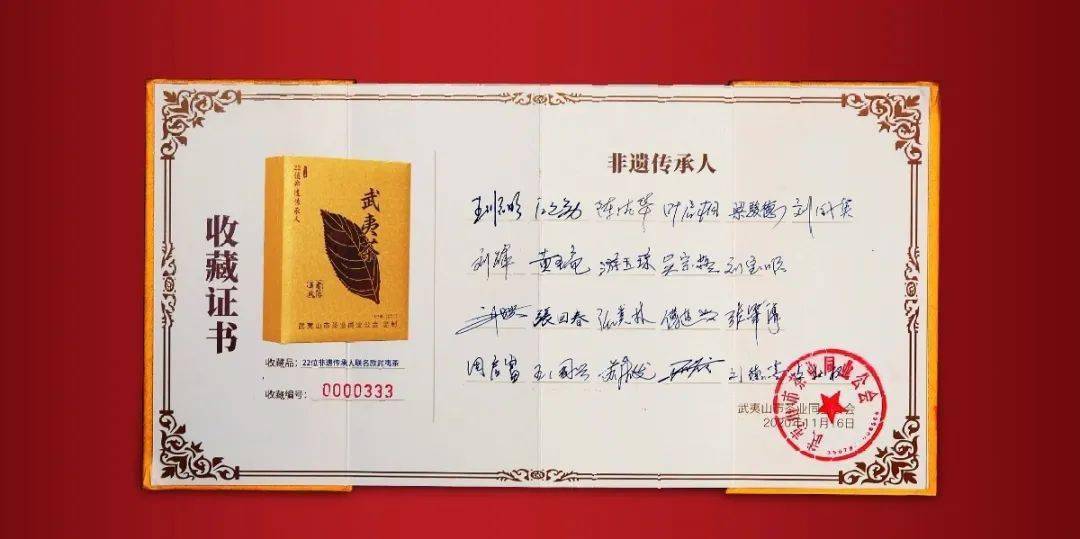 收藏证书
22位非遗传承人
武夷茶
武夷山市茶业同业公会 定制
收藏品：22位非遗传承人联名款武夷茶
收藏编号：0000333
非遗传承人
王顺明 陈德华 叶启桐 梁骏德 刘国英
刘锋 黄圣亮 游玉琼 吴宗燕 刘宝顺
張回春
周启富 王国兴 苏炳溪 刘德喜
武夷山市茶业同业公会
2020年11月16日
武夷山市茶业同业公会